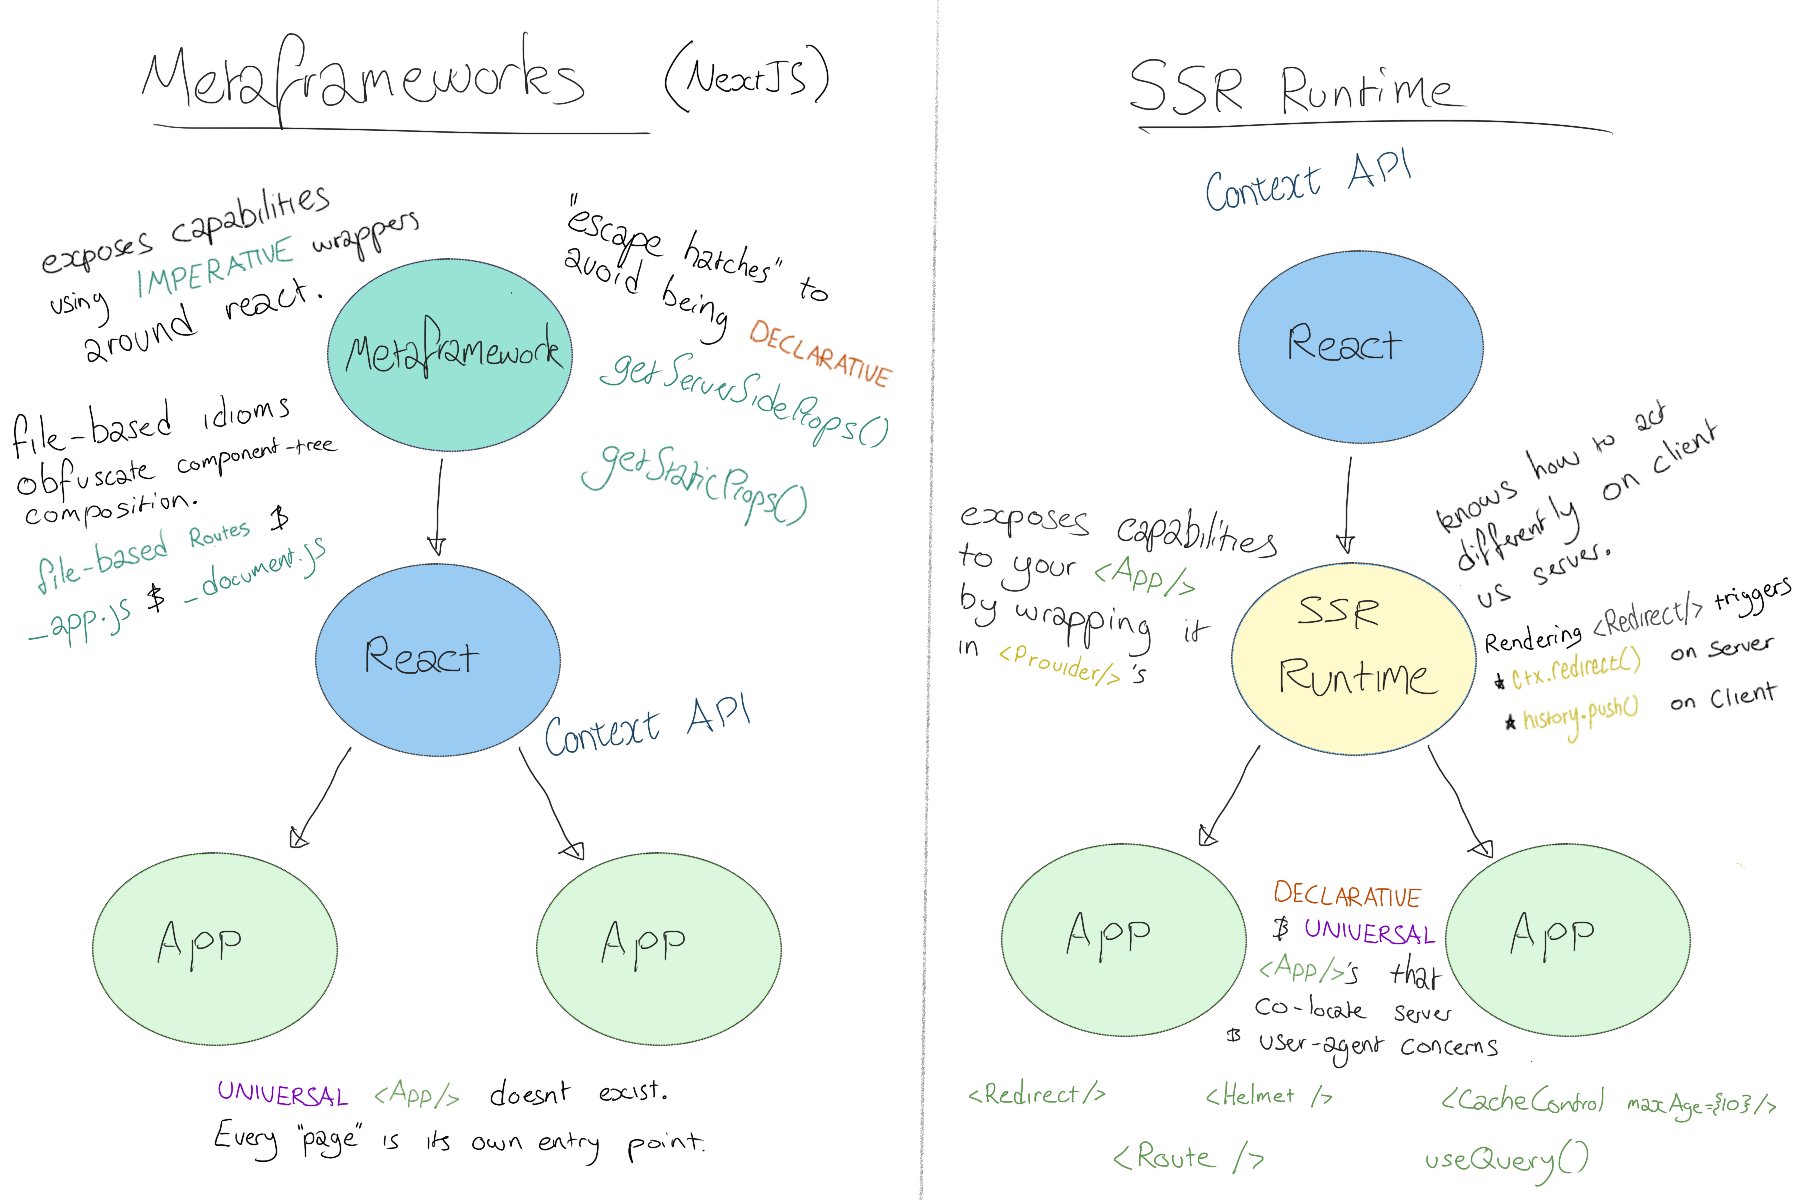 Metaframeworks (NextJS)
exposes capabilities
using IMPERATIVE wrappers
around react.
"escape hatches" to
avoid being DECLARATIVE
getServerSideProps()
getStaticProps()
Metaframework
file-based idioms
obfuscate component-tree
composition.
file-based Routes &
_app.js & _document.js
React
Context API
App
App
UNIVERSAL <App/> doesnt exist.
Every "page" is its own entry point.
SSR Runtime
Context API
React
knows how to act
differently on client
vs server.
exposes capabilities
to your <App/>
by wrapping it
in <Provider/>'s
SSR
Runtime
Rendering <Redirect/> triggers
* ctx.redirect() on server
* history.push() on Client
App
App
DECLARATIVE
& UNIVERSAL
<App/>'s that
co-locate server
& user-agent concerns
<Redirect/> <Helmet /> <CacheControl maxAge={10}/>
<Route /> useQuery()